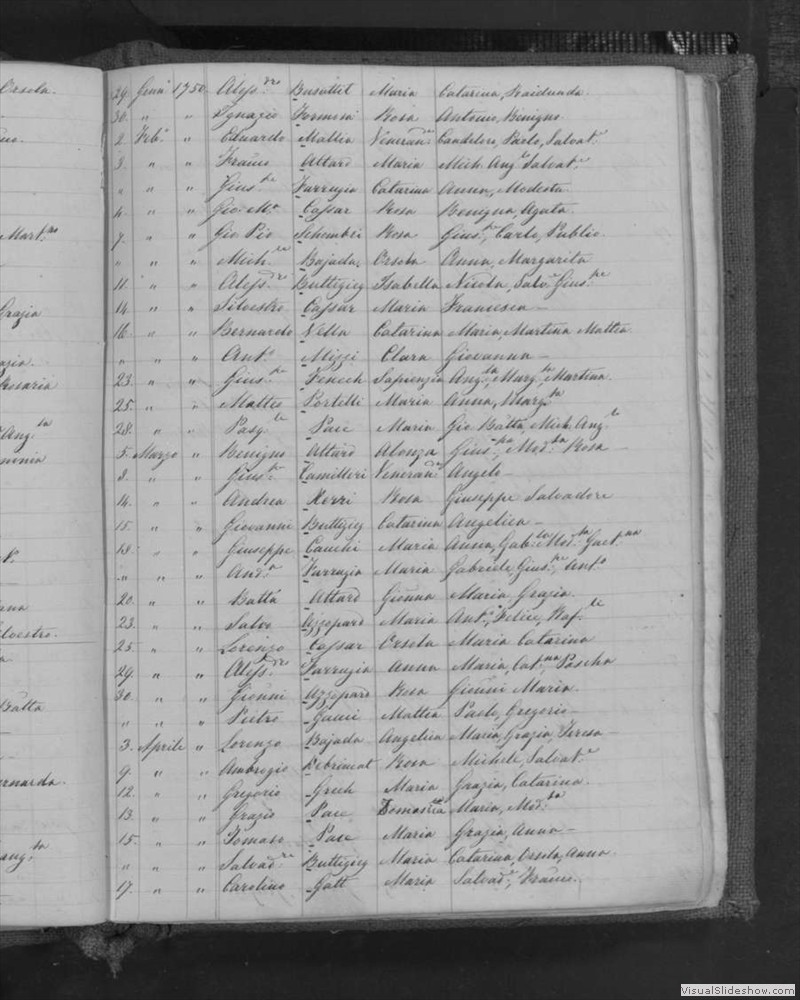 Orsola.
Mart.na
Grazia
Rosaria
Ang.la
Silvestro.
Batta
Bernarda.
ang.la
29 Genn.o 1750 Aless.dro Busuttil Maria Catarina,
30 " " Ignazio Formosa Rosa Antonio, Benigno.
2 Feb.o " Eduardo Mallia Veneran.da Candelora, Paolo, Salvat.e
3 " " Franco Attard Maria Mich. Ang.lo Salvat.e
" " " Gius.pe Farrugia Catarina Anna, Modesta
4 " " Gio. M.a Cassar Rosa Benigna, Agata.
7 " " Gio Pio Schembri Rosa Gius.pe, Carlo, Publio.
" " " Mich.le Bajada, Orsola Anna, Margarita
11 " " Aless.dro Buttigieg Isabella Nicola, Salv.e Gius.pe
14 " " Silvestro Cassar Maria Francesca –
16 " " Bernardo Vella Catarina Maria, Martina Mattea
" " " Ant.o Mizzi Clara Giovanna –
23 " " Gius.pe Fenech Sapienzia Ang.la, Marg.ta, Martina
25 " " Matteo Portelli Maria Anna, Marg.ta
28 " " Pasq.le Pace Maria Gio Batta, Mich. Ang.lo
5 Marzo " Benigno Attard Alonza Gius.pa, Mod.ta Rosa –
8 " " Gius.pe Camilleri Veneran.da Angelo –
14 " " Andrea Rosa Giuseppe Salvadore
15 " " Giovanni Buttigieg Catarina Angelica –
18 " " Giuseppe Cauchi Maria Anna, Gab.la Mod.ta Gaet.na
" " " And.a Farrugia Maria Gabriele Gius.pe, Ant.o
20 " " Batta Attard Gionna Maria Grazia.
23 " " Salvo Azzopard Maria Ant.o, Felice, Raf.le
25 " " Lorenzo Cassar Orsola Maria Catarina
29 " " Aless.dro Farrugia Anna Maria, Cat.na Pascha
30 " " Gionni Azzopard Rosa Gionni Maria.
" " " Pietro Gauci Mattea Paolo, Gregorio –
3 Aprile " Lorenzo Bajada Angelica Maria, Grazia, Teresa –
9 " " Ambrogio Debrincat Rosa Michele, Salvat.e
12 " " Gregorio Grech Maria Grazia, Catarina.
13 " " Grazio Pace Tomasica Maria, Mod.ta
15 " " Tomaso Pace Maria Grazia, Anna –
" " " Salvad.re Buttigieg Maria Catarina, Orsola, Anna
17 " " Carolino Gatt Maria Salvad.e, Franco.
VisualSlideshow.com